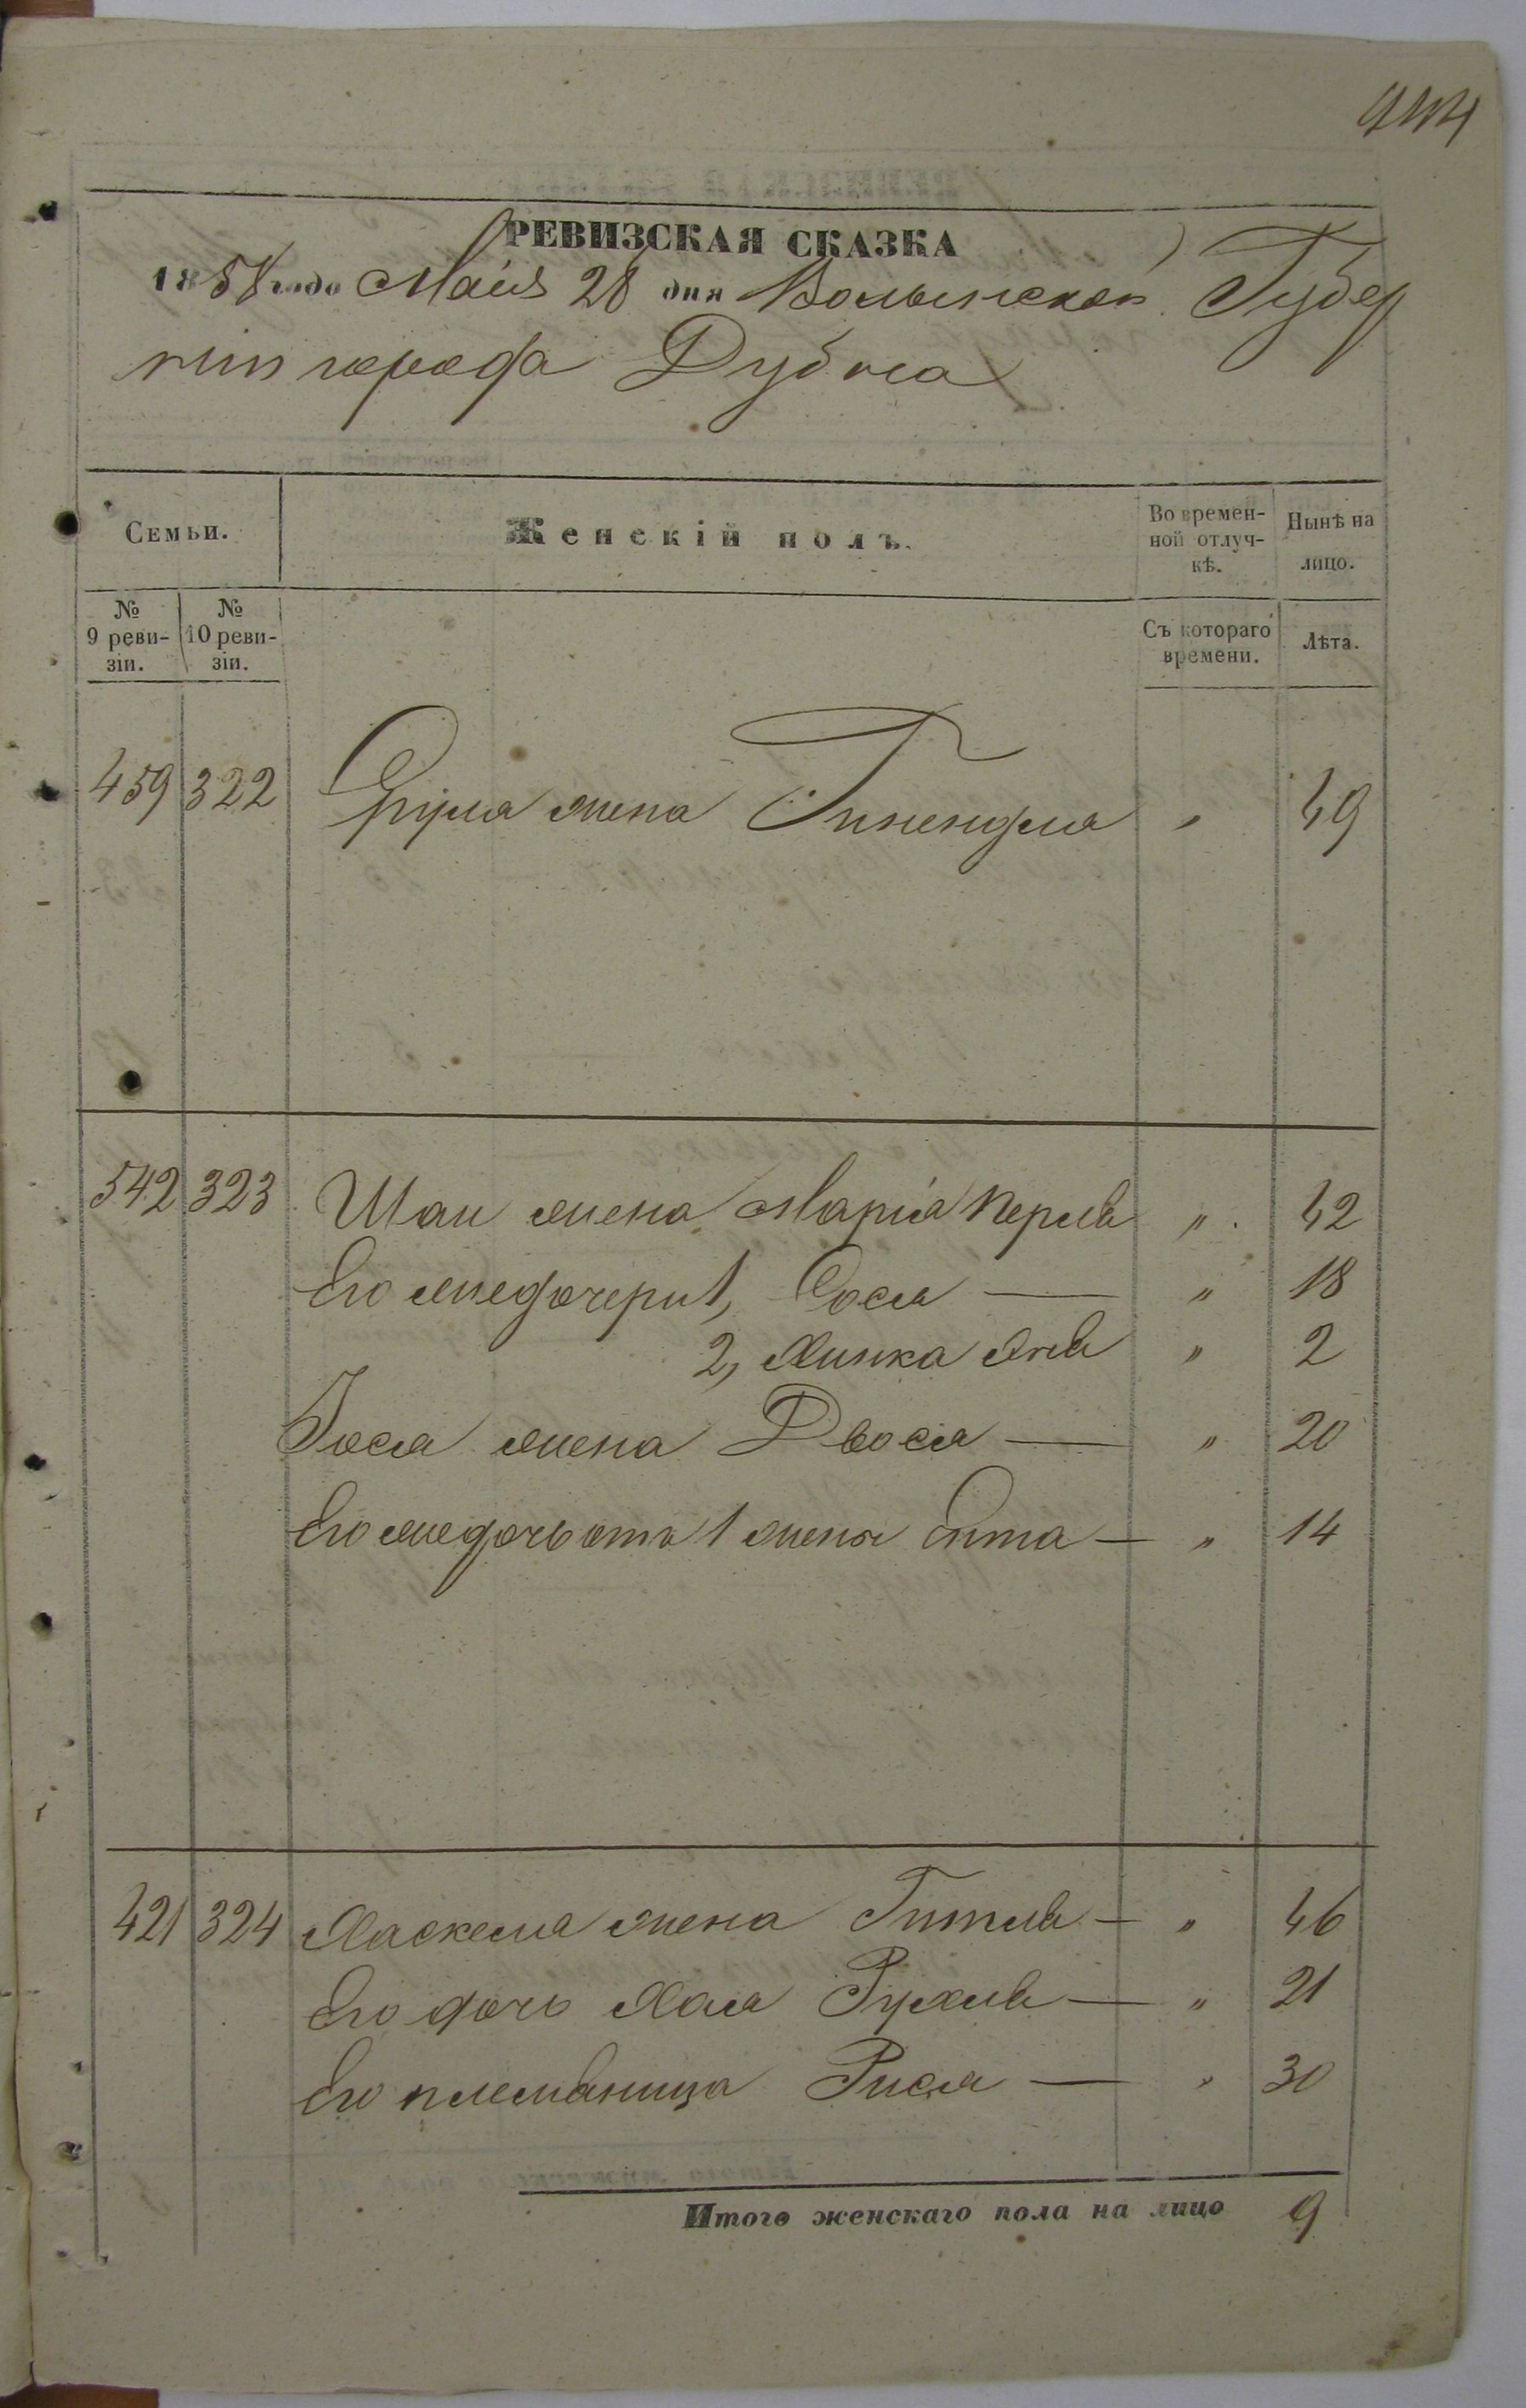 РЕВИЗСКАЯ СКАЗКА
1858 года Маія 28 дня Волынской Губер
ніи города Дубна
Семьи.
Женскій полъ.
Во времен-
ной отлуч-
кѣ.
Нынѣ на
лицо.
№
9 реви-
зіи.
№
10 реви-
зіи.
Съ котораго
времени.
Лѣта.
459 322 Сруля жена Гинендля " 49
542 323 Шаи жена Марія Перля " 42
Его же дочери 1, Сося — " 18
2, Хинка " 2
Іося жена Двося — " 20
Его же дочь отъ 1 жены Этта — " 14
421 324 Хаскеля жена Гитля — " 46
Его дочь Хая Рухля — " 21
Его племяница Рися — " 30
Итого женскаго пола на лицо 9